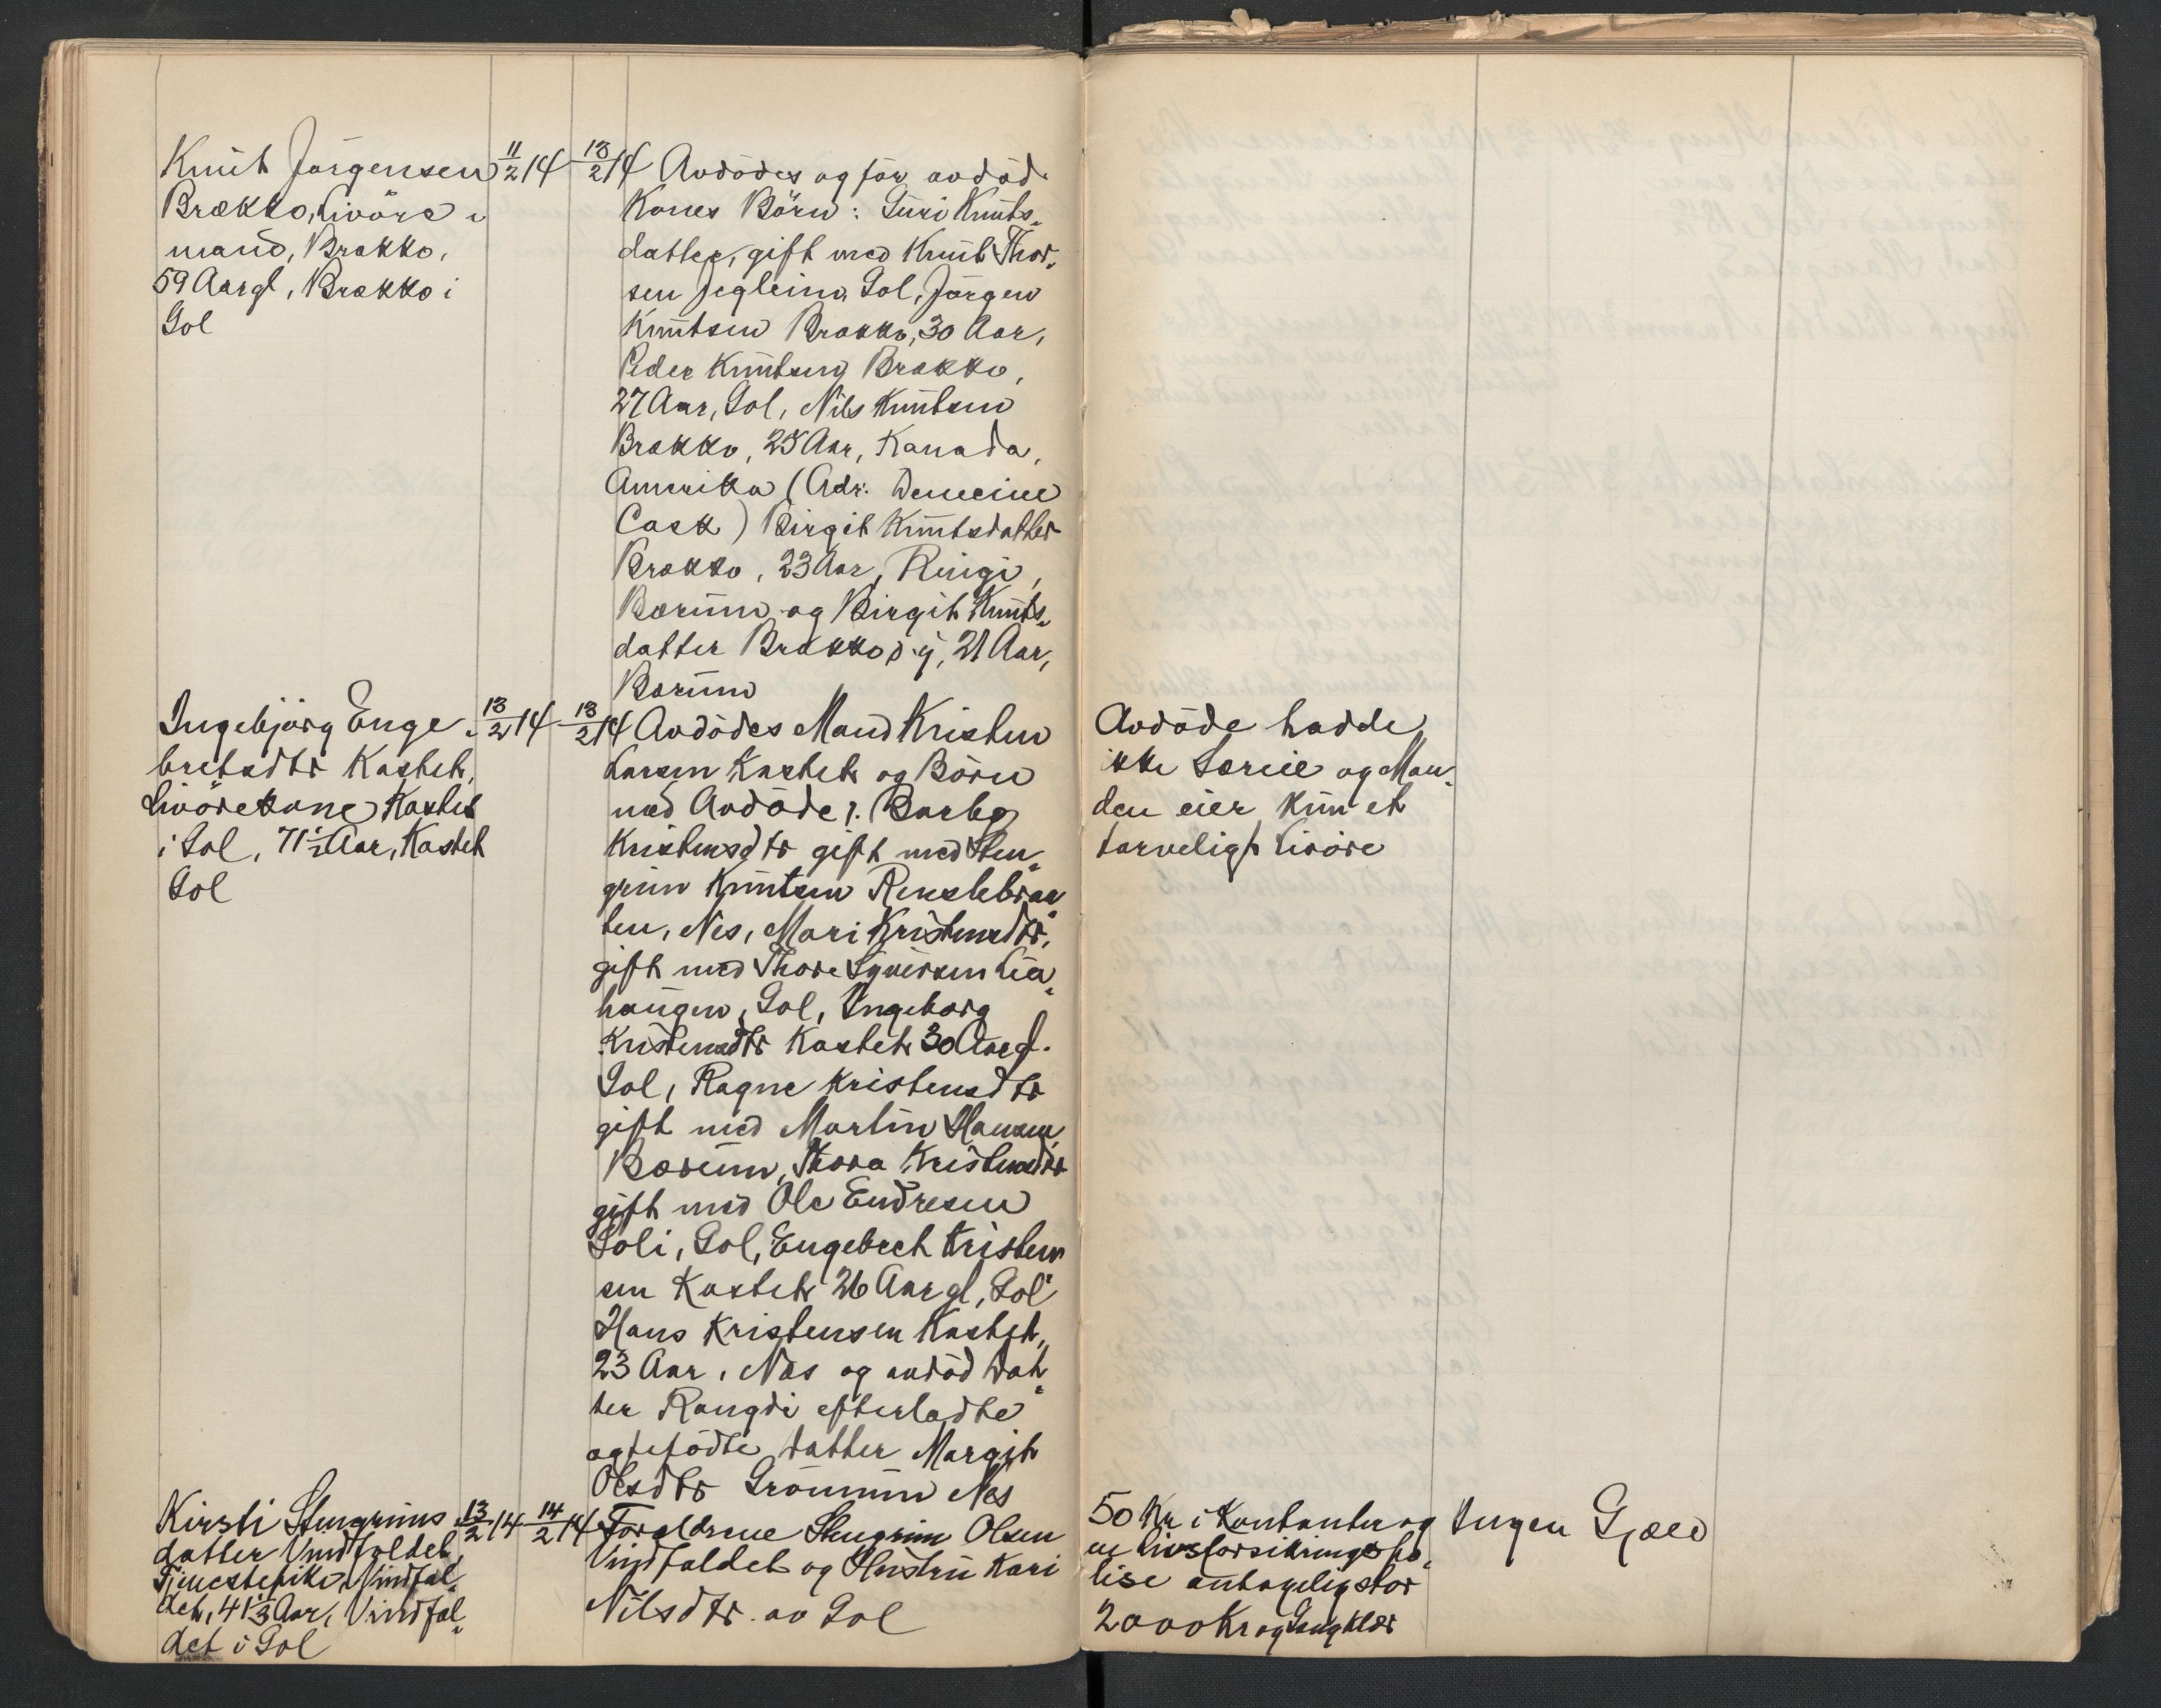 Knut Jörgensen 11/2 14 13/2 14 Avdödes og för avdöd
Brækko, Livöre-
mand, Brækko,
59 Aargl, Brækko i
Gol
Kones Börn: Guri Knuts-
datter, gift med Knut Thor-
sen Jegleim, Gol, Jörgen
Knutsen Brækko, 30 Aar,
Peder Knutsen Brækko,
27 Aar, Gol, Nils Knutsen
Brækko, 25 Aar, Kanada,
Amerika (Adr.
) Birgit Knutsdatter
Brækko, 23 Aar, Ringi,
Bærum og Birgit Knuts-
datter Brækko d.y, 21 Aar,
Bærum
Ingebjörg Enge- 13/2 14 13/2 14
bretsdtr Kastet,
Livörekone Kastet
i Gol, 71 1/2 Aar, Kastet
Gol
Avdödes Mand Kristen
Larsen Kastet og Börn
med Avdöde: Barbo
Kristensdtr gift med Sten-
grim Knutsen Renslebraa-
ten, Nes, Mari Kristensdtr,
gift med Thore Syversen Lia-
haugen, Gol, Ingeborg
Kristensdtr Kastet 30 Aargl.
Gol, Ragne Kristensdtr
gift med Martin Hansen,
Bærum, Thora Kristensdtr
gift med Ole Endresen
Soli, Gol, Engebret Kristen-
sen Kastet 26 Aargl, Gol
Hans Kristensen Kastet,
23 Aar, Næs og avdöd Dat-
ter Rangdi efterladte
ægtefödte Datter Margit
Olsdtr Grönum Nes
Avdöde hadde
ikke Særeie og Man-
den eier kun et
tarveligt Livöre
Kirsti Stengrims- 13/2 14 14/2 14
datter Vindfaldet,
Tjenestepike, Vindfal-
det, 41 1/3 Aar, Vindfal-
det i Gol
Forældrene Stengrim Olsen
Vindfaldet og Hustru Kari
Nilsdtr. av Gol
50 Kr i Kontanter og
en Livsforsikringspo-
lise antagelig stor
2000 Kr og Gangklær
Ingen Gjæld